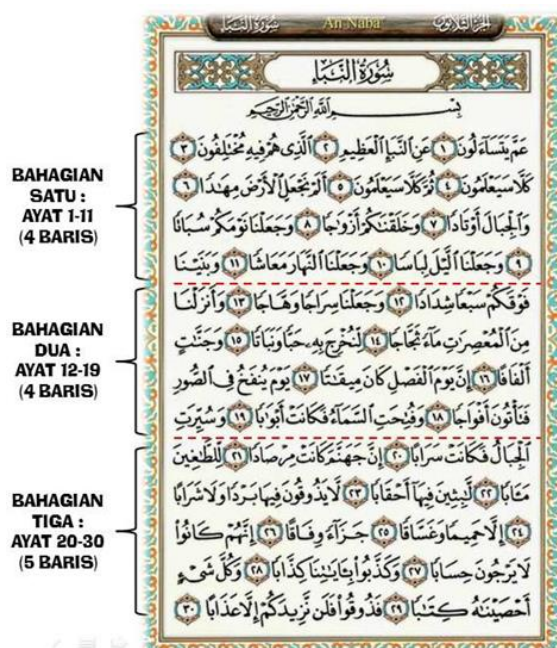 سُورَةُ النَّبَإِ An Naba' الجُزْءُ الثَّلَاثُونَ
سُورَةُ النَّبَإِ
بِسْمِ اللَّهِ الرَّحْمَٰنِ الرَّحِيمِ
BAHAGIAN
SATU :
AYAT 1-11
(4 BARIS)
عَمَّ يَتَسَآءَلُونَ ١ عَنِ ٱلنَّبَإِ ٱلْعَظِيمِ ٢ ٱلَّذِى هُمْ فِيهِ مُخْتَلِفُونَ ٣
كَلَّا سَيَعْلَمُونَ ٤ ثُمَّ كَلَّا سَيَعْلَمُونَ ٥ أَلَمْ نَجْعَلِ ٱلْأَرْضَ مِهَٰدًا ٦
وَٱلْجِبَالَ أَوْتَادًا ٧ وَخَلَقْنَٰكُمْ أَزْوَٰجًا ٨ وَجَعَلْنَا نَوْمَكُمْ سُبَاتًا
٩ وَجَعَلْنَا ٱلَّيْلَ لِبَاسًا ١٠ وَجَعَلْنَا ٱلنَّهَارَ مَعَاشًا ١١ وَبَنَيْنَا
BAHAGIAN
DUA :
AYAT 12-19
(4 BARIS)
فَوْقَكُمْ سَبْعًا شِدَادًا ١٢ وَجَعَلْنَا سِرَاجًا وَهَّاجًا ١٣ وَأَنزَلْنَا
مِنَ ٱلْمُعْصِرَٰتِ مَآءً ثَجَّاجًا ١٤ لِّنُخْرِجَ بِهِۦ حَبًّا وَنَبَاتًا ١٥ وَجَنَّٰتٍ
أَلْفَافًا ١٦ إِنَّ يَوْمَ ٱلْفَصْلِ كَانَ مِيقَٰتًا ١٧ يَوْمَ يُنفَخُ فِى ٱلصُّورِ
فَتَأْتُونَ أَفْوَاجًا ١٨ وَفُتِحَتِ ٱلسَّمَآءُ فَكَانَتْ أَبْوَٰبًا ١٩ وَسُيِّرَتِ
BAHAGIAN
TIGA :
AYAT 20-30
(5 BARIS)
ٱلْجِبَالُ فَكَانَتْ سَرَابًا ٢٠ إِنَّ جَهَنَّمَ كَانَتْ مِرْصَادًا ٢١ لِّلطَّٰغِينَ
مَـَٔابًا ٢٢ لَّٰبِثِينَ فِيهَآ أَحْقَابًا ٢٣ لَّا يَذُوقُونَ فِيهَا بَرْدًا وَلَا شَرَابًا
٢٤ إِلَّا حَمِيمًا وَغَسَّاقًا ٢٥ جَزَآءً وِفَاقًا ٢٦ إِنَّهُمْ كَانُوا۟
لَا يَرْجُونَ حِسَابًا ٢٧ وَكَذَّبُوا۟ بِـَٔايَٰتِنَا كِذَّابًا ٢٨ وَكُلَّ شَىْءٍ
أَحْصَيْنَٰهُ كِتَٰبًا ٢٩ فَذُوقُوا۟ فَلَن نَّزِيدَكُمْ إِلَّا عَذَابًا ٣٠